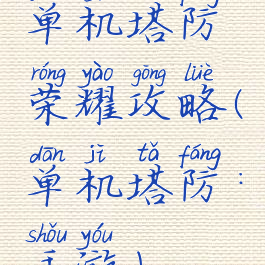 单机塔防
róng yào gōng lüè
荣耀攻略(
dān jī tǎ fáng
单机塔防:
shǒu yóu